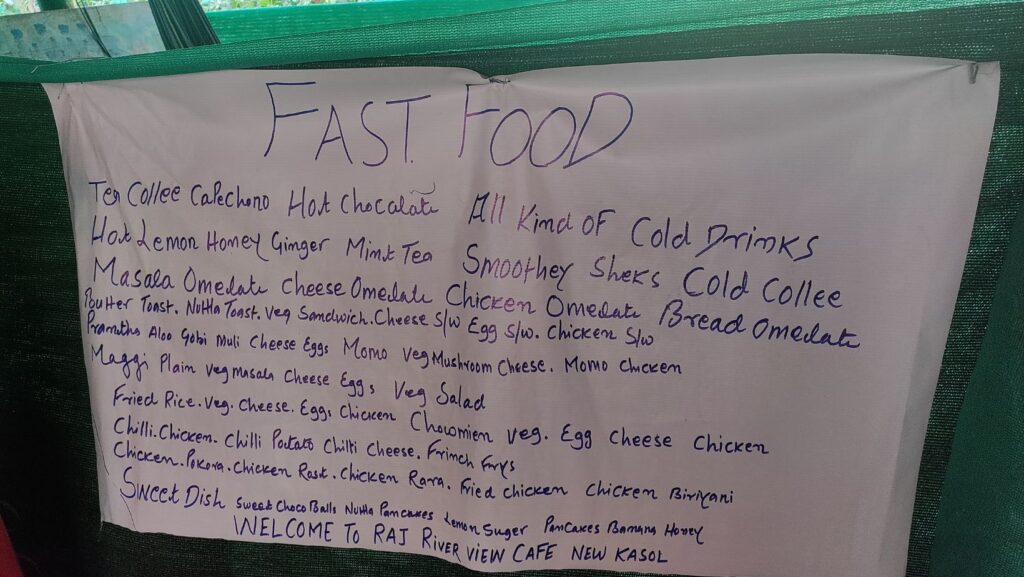 FAST FOOD
Tea Collee Capechono Hot Chocalate All Kind OF Cold Drinks
Hot Lemon Honey Ginger Mint Tea Smoothey Sheks Cold Collee
Masala Omedate Cheese Omedate Chicken Omedate Bread Omedate
Boutter Toast. Nutla Toast. Veg Sandwich. Cheese S/w Egg S/w. Chicken S/w
Pramtha Aloo Gobi Muli Cheese Eggs Momo Veg Mushroom Cheese. Momo Chicken
Maggi Plain Veg Masala Cheese Eggs Veg Salad
Fried Rice. Veg. Cheese. Eggs Chicken Chowmien Veg. Egg Cheese Chicken
Chilli. Chicken. Chilli Poitato Chilli Cheese. Frinch Frys
Chicken. Pokora. Chicken Rost. Chicken Rara. Fried Chicken Chicken Biriyani
Sweet Dish Sweet Choco Balls Nutlla Pancakes Lemon Suger Pancakes Banana Honey
WELCOME TO RAJ RIVER VIEW CAFE NEW KASOL